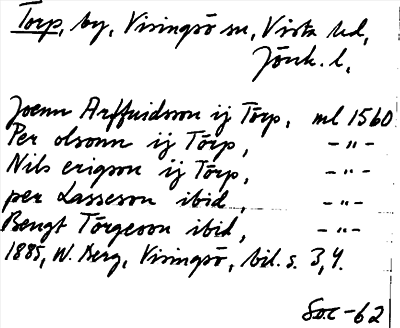 Torp, by, Visingsö sn, Vista hd,
Jönk. l.
Joenn Arffuidsson ij Torp, ml 1560
Per olsonn ij Torp, -"-
Nils erigson ij Torp, -"-
per Lasseson ibid, -"-
Bengt Törgeson ibid, -"-
1885, W. Berg, Visingsö, bil. s. 3, 4.
Soc-62